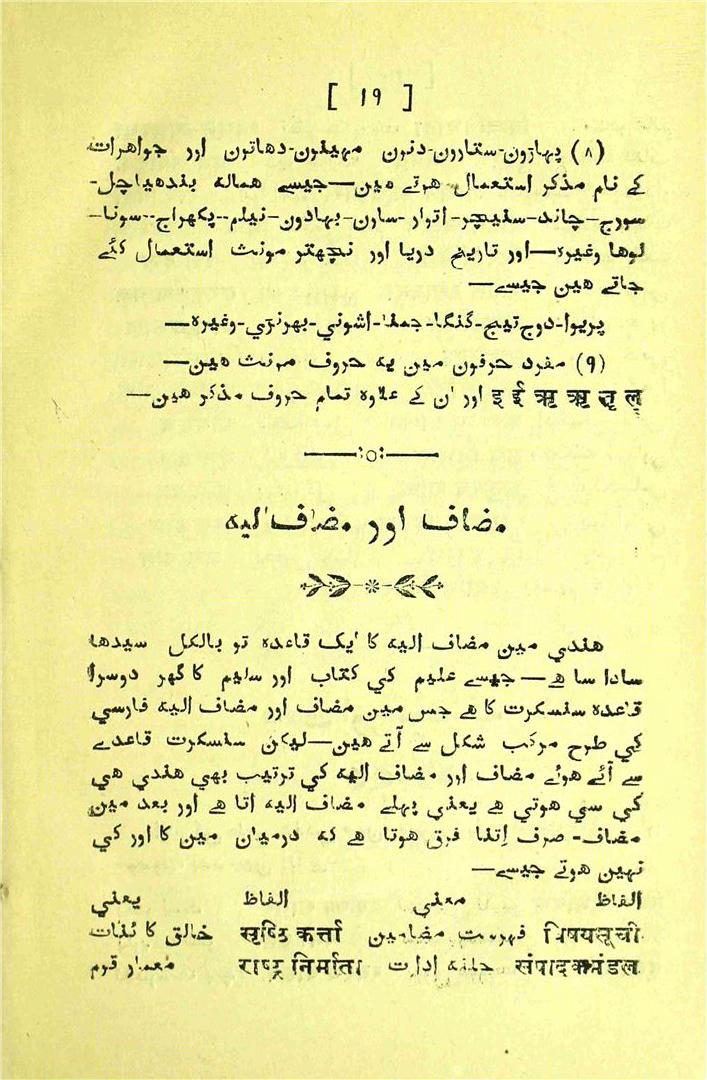 [ ۱۹ ]
(۸) پہاڑون-ستارون-دنون مہینون-دھاتون اور جواھرات
کے نام مذکر استعمال ھوتے ھین—جیسے ھمالہ بندھیاچل-
سورج-چاند-سنیچر-اتوار-ساون-بھادون-نیلم-پکھراج--سونا-
لوھا وغیرہ—اور تاریخ دریا اور نچھتر مونث استعمال کئے
جاتے ھین جیسے—
پریوا-دوج تیج-گنگا-جمنا-اشونی-بھرنڑی-وغیرہ—
(۹) مفرد حرفون مین یہ حروف مونث ھین—
इ ई ऋ ॠ ऌ ॡ اور ان کے علاوہ تمام حروف مذکر ھین—
مضاف اور مضاف الیہ
ھندی مین مضاف الیہ کا ایک قاعدہ تو بالکل سیدھا
سادا سا ھے—جیسے علیم کی کتاب اور سلیم کا گھر دوسرا
قاعدہ سنسکرت کا ھے جس مین مضاف اور مضاف الیہ فارسی
کی طرح مرکب شکل سے آتے ھین—لیکن سنسکرت قاعدے
سے آئے ھوئے مضاف اور مضاف الیہ کی ترتیب بھی ھندی ھی
کی سی ھوتی ھے یعنی پہلے مضاف الیہ اتا ھے اور بعد مین
مضاف- صرف اِتنا فرق ھوتا ھے کہ درمیان مین کا اور کی
نہین ھوتے جیسے—
الفاظ معنی الفاظ یعنی
विषयसूची فہرست مضامین सृष्टि कर्त्ता خالق کا ئنات
संपादक मंडल حلقہ ادارت राष्ट्र निर्माता معمار قوم